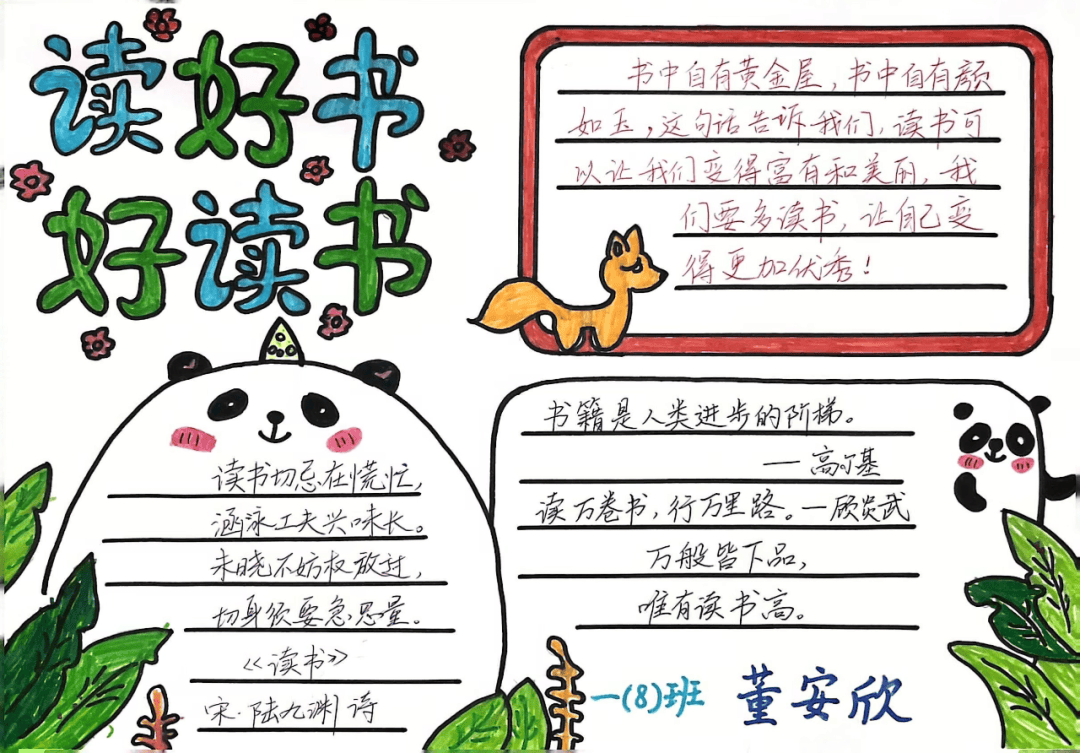 读好书
好读书
书中自有黄金屋，书中自有颜
如玉，这句话告诉我们，读书可
以让我们变得富有和美丽，我
们要多读书，让自己变
得更加优秀！
读书切忌在慌忙，
涵泳工夫兴味长。
未晓不妨权放过，
切身须要急思量。
《读书》
宋·陆九渊 诗
书籍是人类进步的阶梯。
— 高尔基
读万卷书，行万里路。—顾炎武
万般皆下品，
唯有读书高。
一(8)班 董安欣